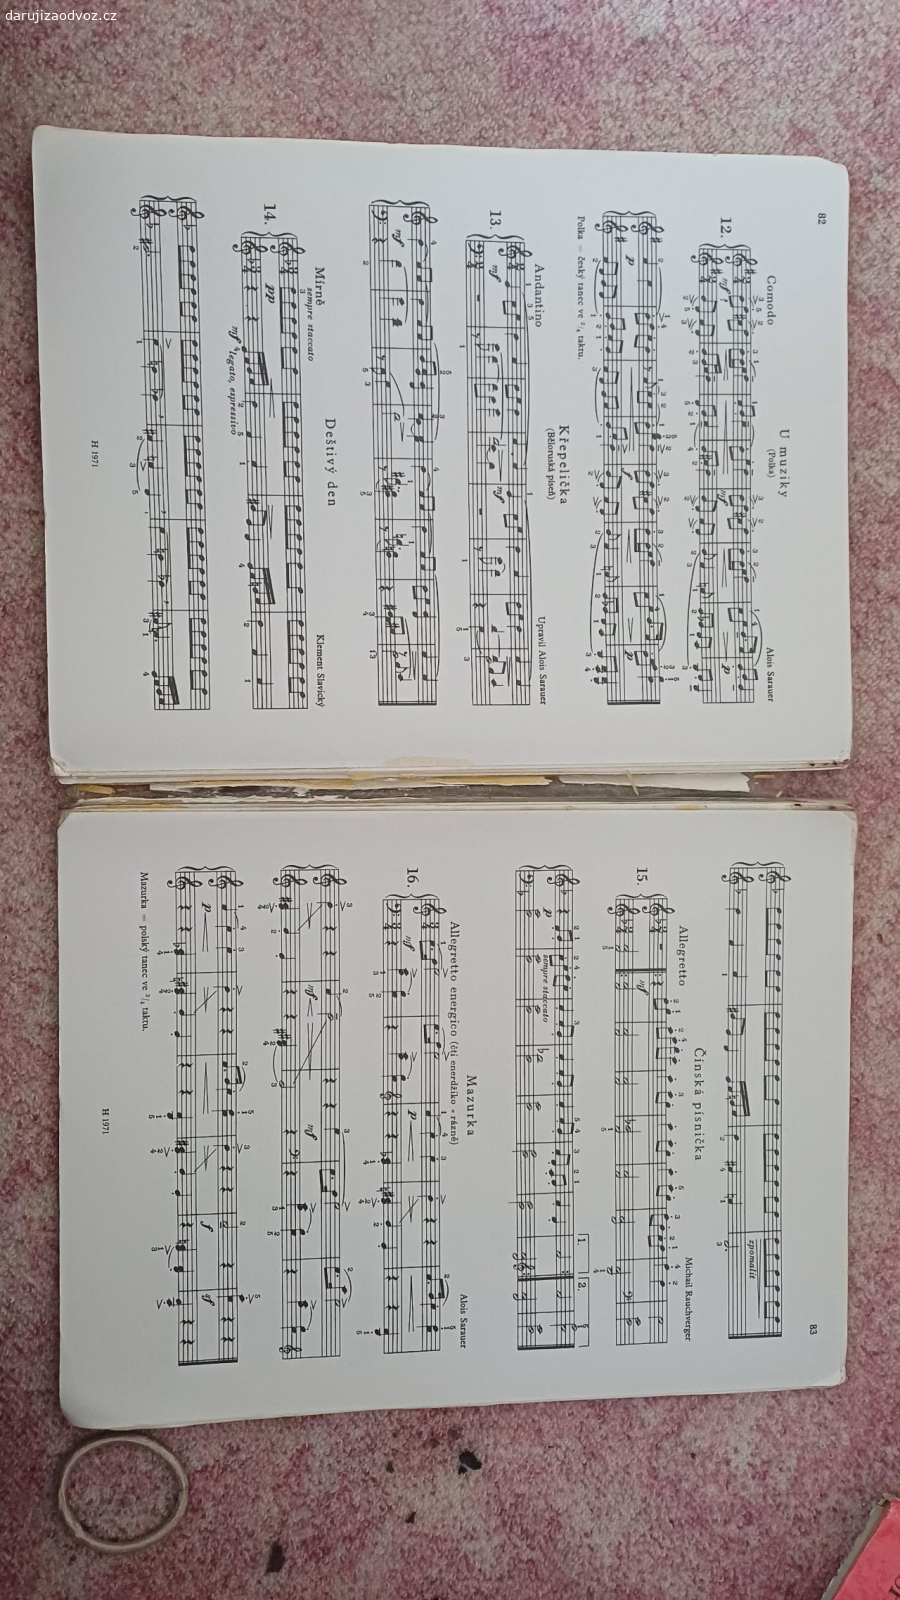 darujizaodvoz.cz
82
U muziky
(Polka)
Comodo
Alois Sarauer
12.
mf
mf
p
p
f
p
Polka = český tanec ve 2/4 taktu.
Křepelička
(Běloruská píseň)
Andantino
Upravil Alois Sarauer
13.
mf
mf
mf
Deštivý den
Mírně
Klement Slavický
sempre staccato
14.
pp
mf legato, espressivo
H 1971
83
zpomalit
Čínská písnička
Allegretto
Michail Rauchverger
15.
mf
1.
2.
p
sempre staccato
Mazurka
Allegretto energico (čti enerdžiko = rázně)
Alois Sarauer
16.
mf
p
mf
mf
p
f
sf
Mazurka = polský tanec ve 3/4 taktu.
H 1971